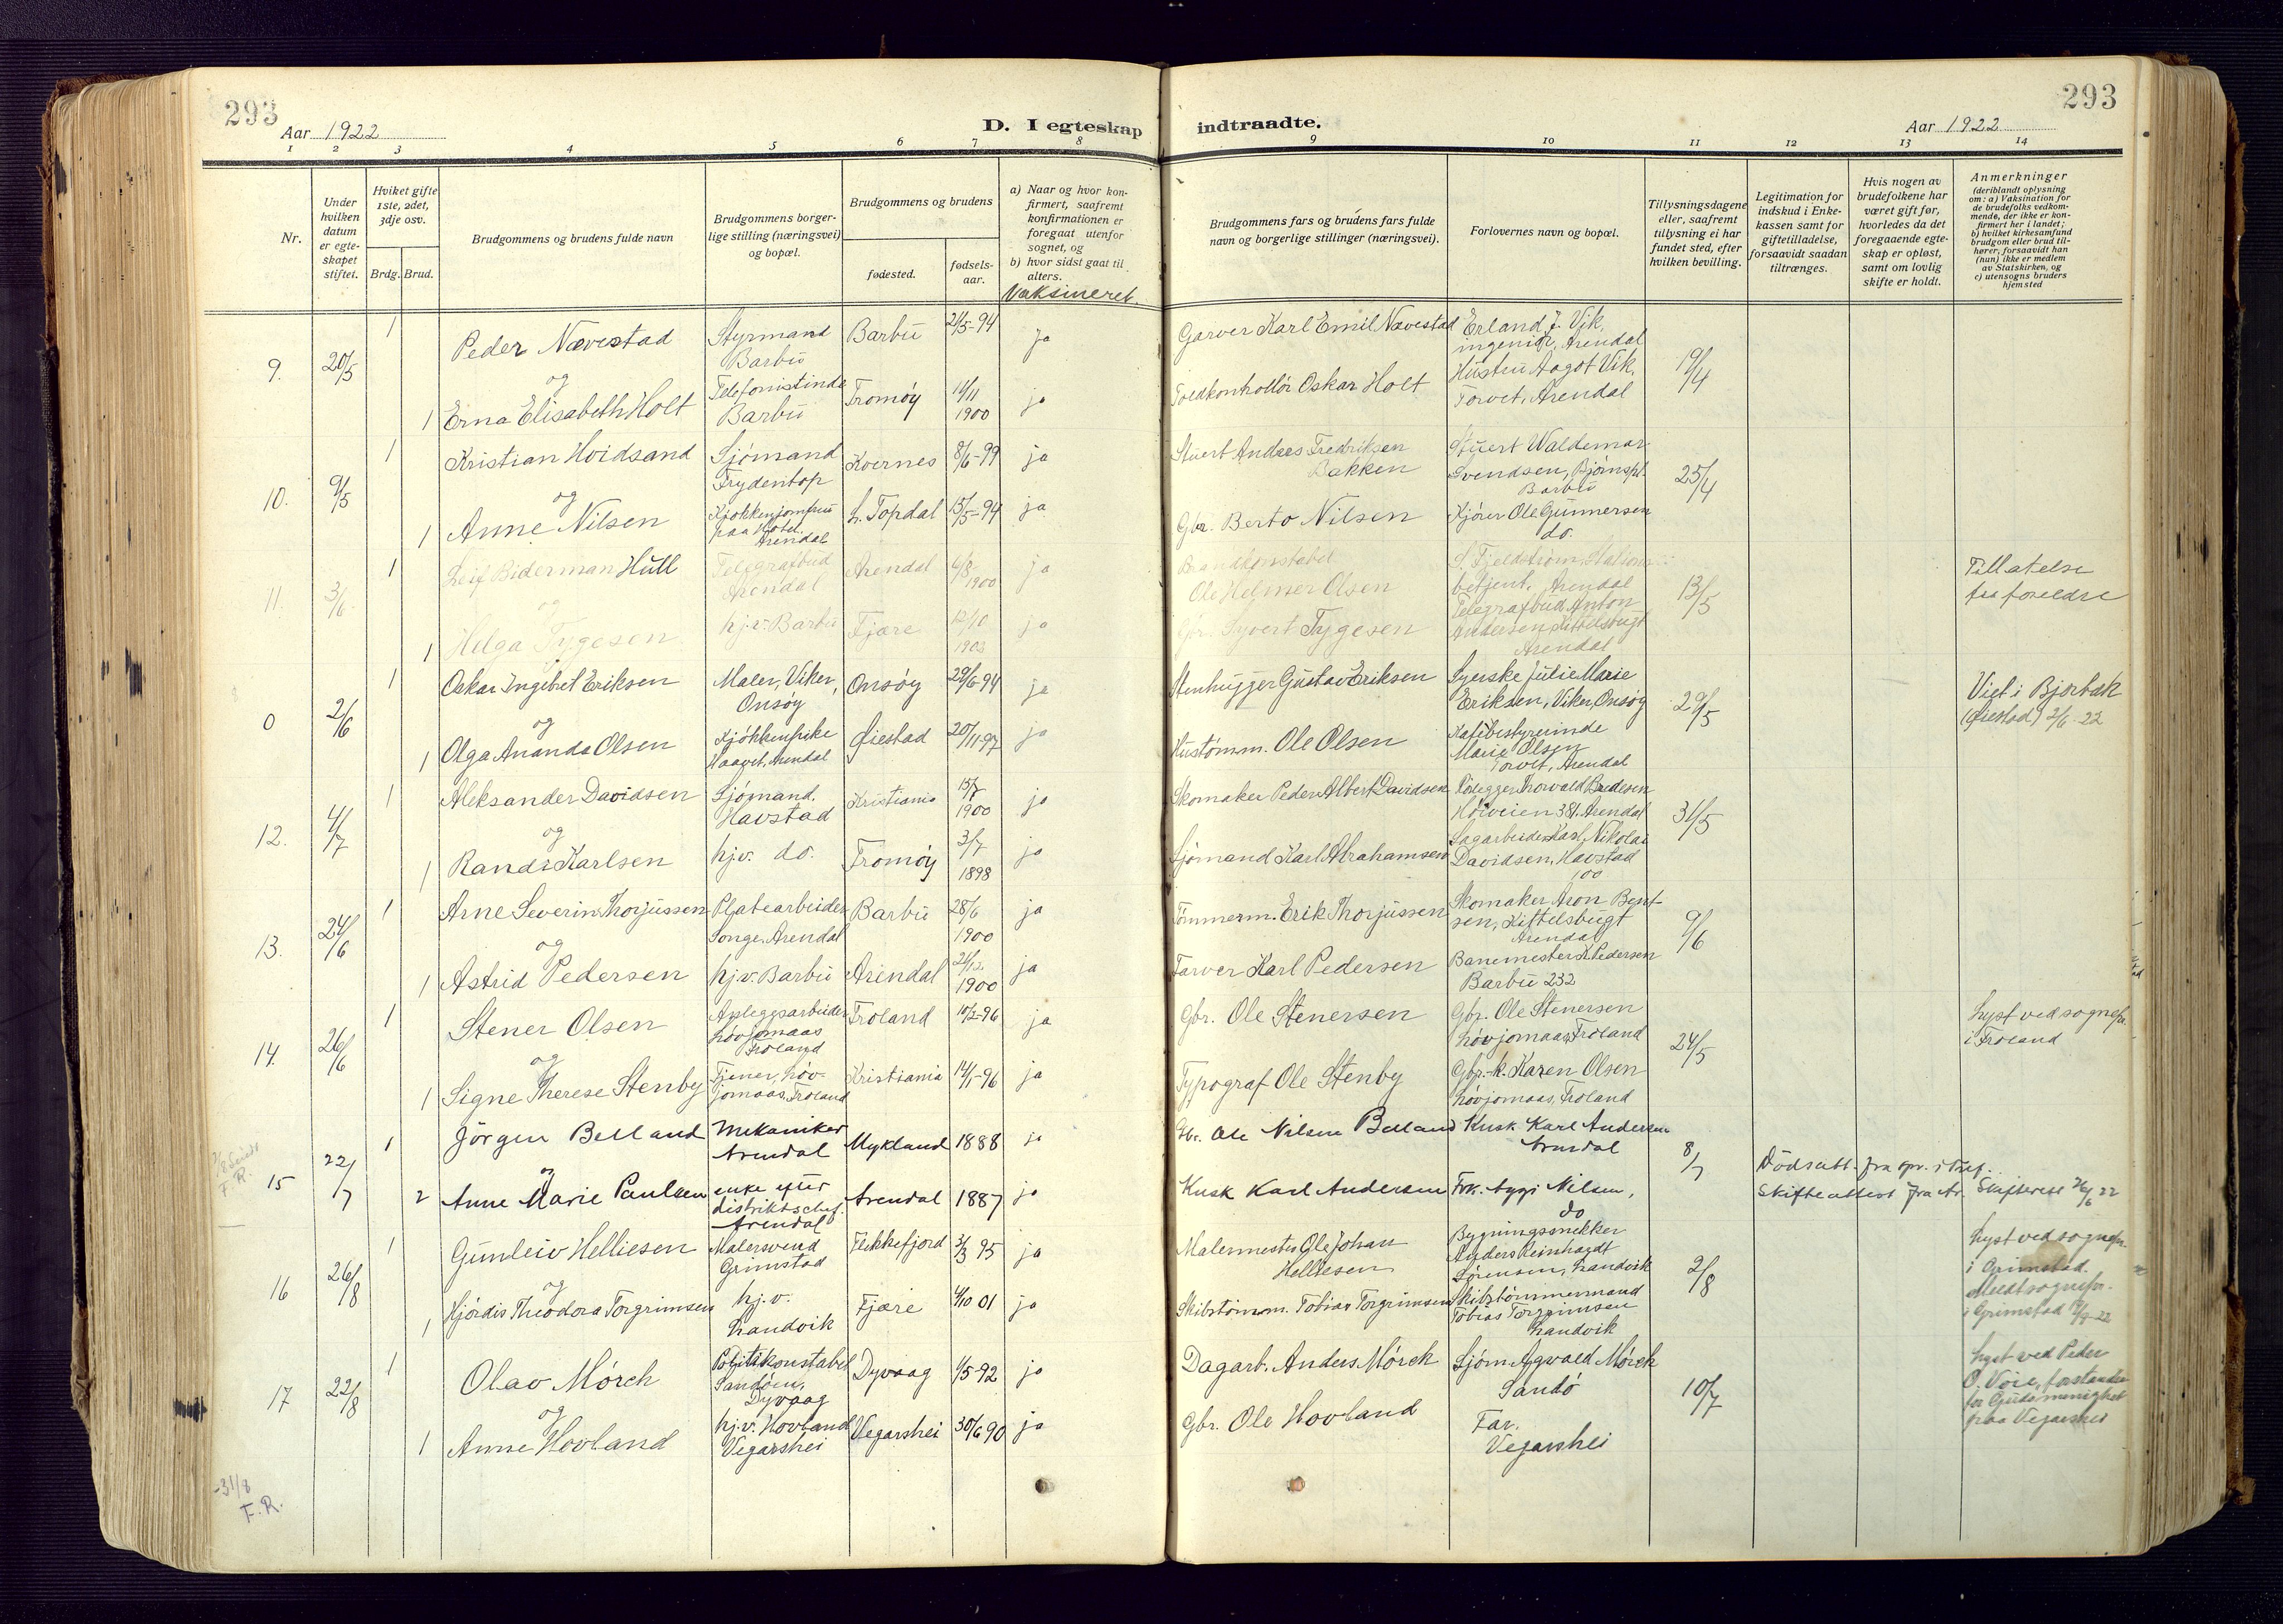 293
Aar 1922
D. I egteskap
1 2 3 4 5 6 7 8
Nr.
Under hvilken datum er egte-skapet stiftet.
Hviket gifte 1ste, 2det, 3dje osv.
Brdg. Brud.
Brudgommens og brudens fulde navn
Brudgommens borger-lige stilling (næringsvei) og bopæl.
Brudgommens og brudens
fødested.
fødsels-aar.
a) Naar og hvor kon-firmert, saafremt konfirmationen er foregaat utenfor sognet, og
b) hvor sidst gaat til alters.
Vaksineret.
9. 20/5
1 Peder Nævestad Styrmand Barbu Barbu 21/5-94 Ja
og
1 Erna Elisabeth Holt Telefonistinde Barbu Tromøy 14/11 1900 ja
10. 9/5
1 Kristian Hoidsand Sjømand Frydentop Kvernes 8/6-99 ja
og
1 Anne Nilsen Kjøkkenjomfru paa Hotel Arendal L. Topdal 15/5-94 ja
11. 3/6
1 Leif Biderman Hull Telegrafbud Arendal Arendal 6/8 1900 ja
og
1 Helga Tygesen hj.v. Barbu Fjære 12/10 1903 ja
0 2/6
1 Oskar Ingebret Eriksen Maler, Viker, Onsøy Onsøy 29/6-94 ja
og
1 Olga Ananda Olsen Kjøkkenpike Haavet, Arendal Øiestad 20/11-97 ja
12. 4/7
1 Aleksander Davidsen Sjømand. Havstad Kristiania 15/7 1900 ja
og
1 Randi Karlsen hj.v. do. Tromøy 3/7 1898 ja
13. 24/6
1 Arne Severin Thorjussen Platearbeider Songe, Arendal Barbu 28/6 1900 ja
og
1 Astrid Pedersen hj.v. Barbu Arendal 21/12 1900 ja
14. 26/6
1 Stener Olsen Anleggsarbeider Løvjomaas Froland Froland 10/2-96 ja
og
1 Signe Therese Stenby Tjener, Løv-jomaas, Froland Kristiania 14/1-96 ja
15 22/7
1 Jörgen Belland Mekaniker Arendal Mykland 1888 ja
og
2 Anne Marie Paulsen enke efter distriktschef. Arendal Arendal 1887 ja
16 26/8
1 Gunleiv Helliesen Malersvend Grimstad Flekkefjord 3/3 95 ja
og
1 Hjørdis Theodora Torgrimsen hj.v. Landvik Fjære 4/10 01 ja
17 22/8
1 Olav Mörch Politikonstabel Sandöen, Dyvaag Dyvaag 1/5-92 ja
og
1 Anne Hovland hj.v. Hovland Vegarshei Vegarshei 30/6 90 ja
-31/8
F.R.
indtraadte.
Aar 1922
293
9 10 11 12 13 14
Brudgommens fars og brudens fars fulde navn og borgerlige stillinger (næringsvei).
Forlovernes navn og bopæl.
Tillysningsdagene eller, saafremt tillysning ei har fundet sted, efter hvilken bevilling.
Legitimation for indskud i Enke-kassen samt for giftetilladelse, forsaavidt saadan tiltrænges.
Hvis nogen av brudefolkene har været gift før, hvorledes da det foregaaende egte-skap er opløst, samt om lovlig skifte er holdt.
Anmerkninger
(deriblandt oplysning om: a) Vaksination for de brudefolks vedkom-mende, der ikke er kon-firmert her i landet; b) hvilket kirkesamfund brudgom eller brud til-hører, forsaavidt han (hun) ikke er medlem av Statskirken, og c) utensogns bruders hjemsted
Garver Karl Emil Nævestad Erland J. Vik, ingeniør, Arendal
Toldkontrollør Oskar Holt Hustru Aagot Vik, Torvet, Arendal 19/4
Stuert Anders Fredriksen Bakken Stuert Waldemar Svendsen, Bjørnspl. Barbu
Gbr. Berto Nilsen Kjører Ole Gunnersen do. 25/4
Brandkonstabel Ole Helmer Olsen S. Fjeldstrøm, Stations-betjent, Arendal
Gbr. Syvert Tygesen Telegrafbud Anton Andersen, Kittelsbugt Arendal 13/5
Tillatelse fra foreldre
Stenhugger Gustav Eriksen Syerske Julie Marie Eriksen, Viker, Onsøy
Hustømm. Ole Olsen Kafébestyrerinde Marie Olsen Torvet, Arendal 29/5
Viet i Bjorbæk (Øiestad) 2/6-22
Skomaker Peder Albert Davidsen Rørlegger Thorvald Bredesen Høiveien 381. Arendal
Sjømand Karl Abrahamsen Sagarbeider Karl Nikolai Davidsen, Havstad 100 31/5
Tømmerm. Erik Thorjussen Skomaker Aron Bent-sen, Kittelsbugt Arendal
Farver Karl Pedersen Banemester K. Pedersen Barbu 232 9/6
Gbr. Ole Stenersen Gbr. Ole Stenersen Løvjomaas, Froland
Typograf Ole Stenby Gbr.-k. Karen Olsen Løvjomaas, Froland 24/5
Lyst ved sognepr. i Froland
Gbr. Ole Nilsen Belland Kusk Karl Andersen Arendal
Kusk Karl Andersen Frk. Aygi Nilsen, do 8/7
Dödsatt. fra spr. i Tref.
Skifteattest fra Ar. Skifterett 26/6 22
Malermester Ole Johan Helliesen Bygningssnekker Anders Reinhardt Sørensen, Landvik
Skibstömm. Tobias Torgrimsen Skibstömmermand Tobias Torgrimsen Landvik 2/8
Lyst ved sognepr. i Grimstad.
Meldt sognepr. i Grimstad
Dagarb. Anders Mørch Sjøm. Agvald Mørch Sandö
Gbr. Ole Hovland Far. Vegarshei 10/7
Lyst ved Peder O. Voie, forstander for Gudsmenighet paa Vegarshei